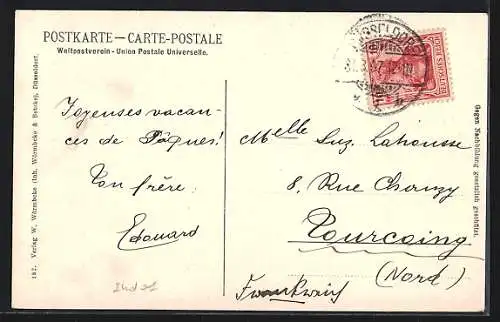 POSTKARTE — CARTE-POSTALE
Weltpostverein - Union Postale Universelle.
DÜSSELDORF
DEUTSCHES REICH
Joyeuses vacan-
ces de Pâques!
Ton frère
Edouard
Melle Suz. Lahousse
8, Rue Chanzy
Tourcoing
(Nord)
Frankreich
187. Verlag W. Wörmbcke (Inh. Wörmbcke &
Düsseldorf.
Gegen Nachbildung gesetzlich geschützt.